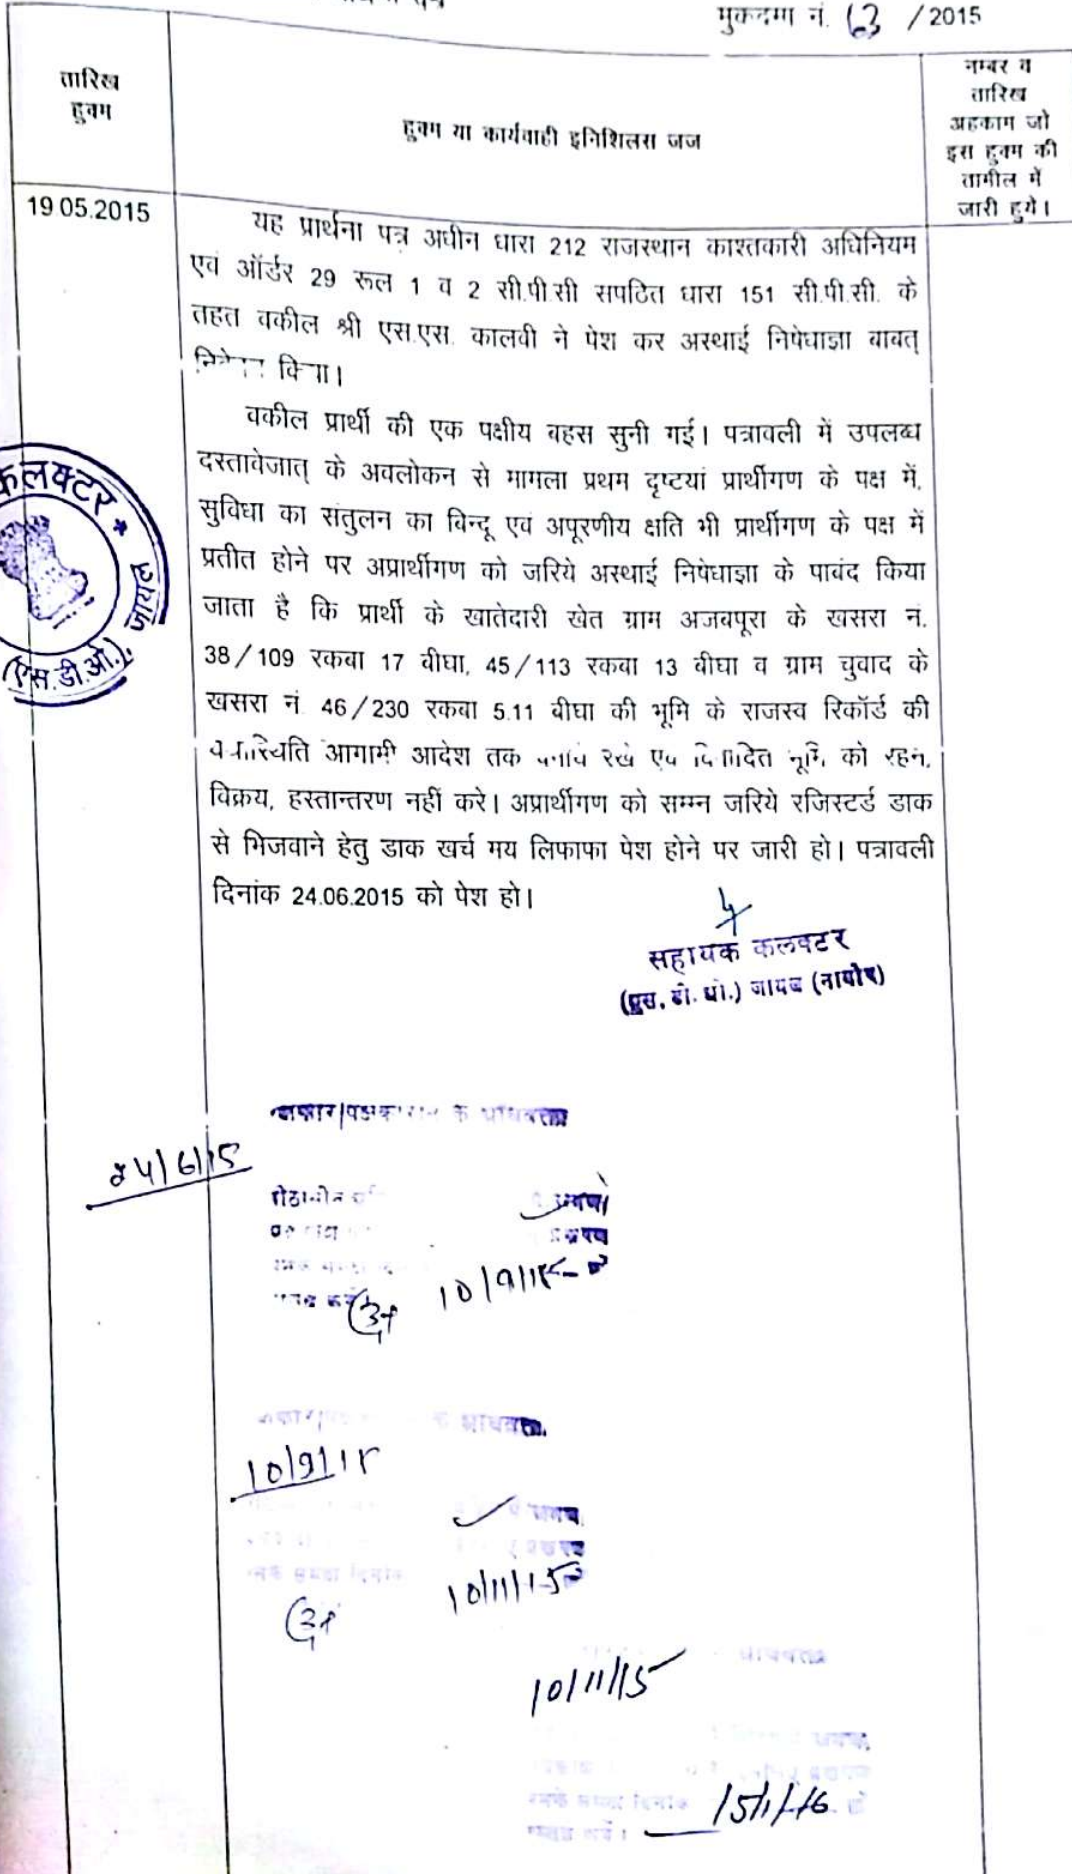 मुकदमा नं. 63 / 2015
तारिख
हुक्म
हुक्म या कार्यवाही इनिशिलस जज
नम्बर व
तारिख
अहकाम जो
इस हुक्म की
तामील में
जारी हुये।
19.05.2015
यह प्रार्थना पत्र अधीन धारा 212 राजस्थान काश्तकारी अधिनियम
एवं ऑर्डर 29 रूल 1 व 2 सी.पी.सी सपठित धारा 151 सी.पी.सी. के
तहत वकील श्री एस.एस. कालवी ने पेश कर अस्थाई निषेधाज्ञा बाबत्
किया।
वकील प्रार्थी की एक पक्षीय बहस सुनी गई। पत्रावली में उपलब्ध
दस्तावेजात् के अवलोकन से मामला प्रथम दृष्टयां प्रार्थीगण के पक्ष में,
सुविधा का संतुलन का बिन्दू एवं अपूरणीय क्षति भी प्रार्थीगण के पक्ष में
प्रतीत होने पर अप्रार्थीगण को जरिये अस्थाई निषेधाज्ञा के पाबंद किया
जाता है कि प्रार्थी के खातेदारी खेत ग्राम अजबपूरा के खसरा नं.
38/109 रकबा 17 बीघा, 45/113 रकबा 13 बीघा व ग्राम चुवाद के
खसरा नं. 46/230 रकबा 5.11 बीघा की भूमि के राजस्व रिकॉर्ड की
आगामी आदेश तक रखे एवं को रहन,
विक्रय, हस्तान्तरण नहीं करे। अप्रार्थीगण को सम्मन जरिये रजिस्टर्ड डाक
से भिजवाने हेतु डाक खर्च मय लिफाफा पेश होने पर जारी हो। पत्रावली
दिनांक 24.06.2015 को पेश हो।
कलक्टर *
(एस.डी.ओ.), जायल
सहायक कलक्टर
(एस. डी. ओ.) जायल (नागौर)
24/6/15
10/9/15
10/9/15
10/11/15
10/11/15
15/1/16